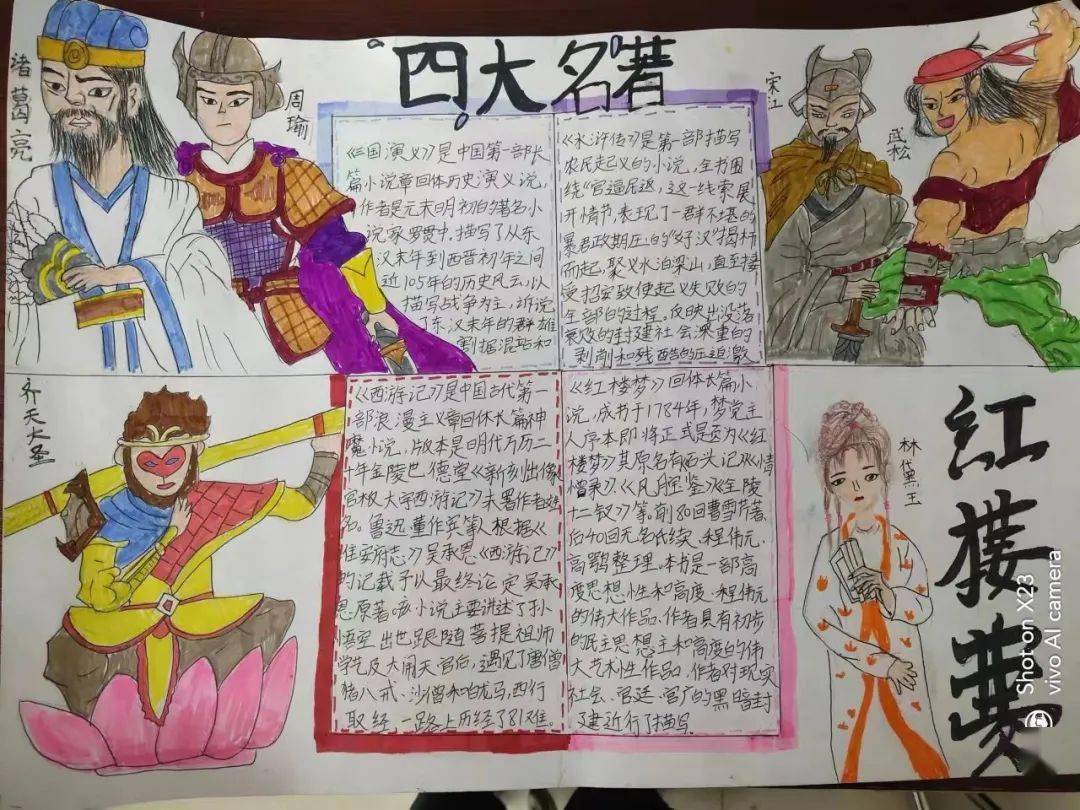 四大名著
诸葛亮
周瑜
《三国演义》是中国第一部长
篇小说章回体历史演义说,
作者是元末明初的著名小
说家罗贯中,描写了从东
汉末年到西晋初年之间
近105年的历史风云,以
描写战争为主,诉说
了东汉末年的群雄
割据混站和
《水浒传》是第一部描写
农民起义的小说,全书围
绕"官逼民返,这一线索展
开情节,表现了一群不堪的
暴君政期压的"好汉"揭杆
而起,聚义水泊梁山,直至接
受招安致使起义失败的
全部的过程。反映出没落
衰败的封建社会深重的
剥削和残酷的压迫激
宋江
武松
齐天大圣
《西游记》是中国古代第一
部浪漫主义章回体长篇神
魔小说,版本是明代万历二
十年金陵世德堂《新刻出像
官板大字西游记》未署作者姓
名。鲁迅董作宾等人根据《
淮安府志》吴承恩《西游记》
的记载予以最终论定吴承
恩原著该小说主要讲述了孙
悟空出世跟随菩提祖师
学艺及大闹天宫后,遇见了唐僧
猪八戒、沙僧和白龙马,西行
取经,一路上历经了81难。
《红楼梦》回体长篇小
说,成书于1784年,梦觉主
人序本即将正式是至为《红
楼梦》其原名有石头记》《情
僧录》《风月宝鉴》《金陵
十二钗》等。前80回曹雪芹著,
后40回无名氏续,程伟元、
高鹗整理。本书是一部高
度思想性和高度、程伟元
的伟大作品、作者具有初步
的民主思想主和高度的伟
大艺术性作品。作者对现实
社会、宫廷、官场的黑暗封
了建近行了描写
林黛玉
红楼梦
Shot on X23
vivo AI camera